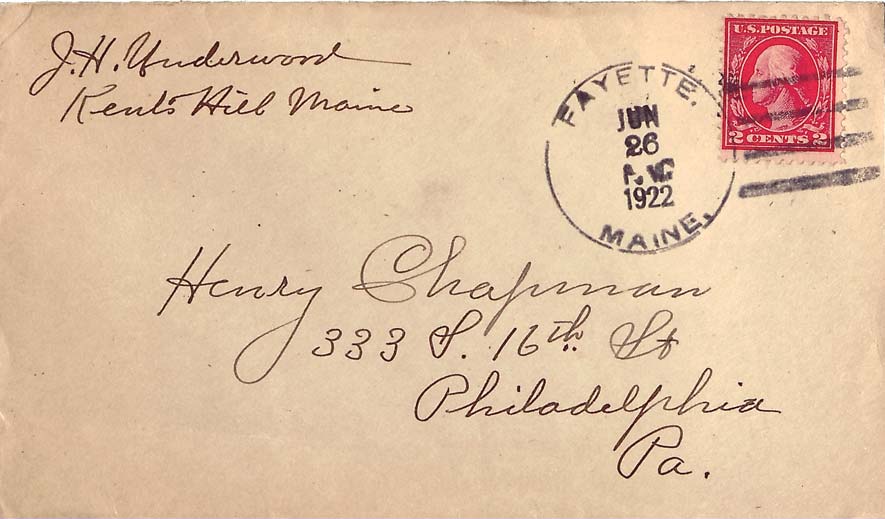 J. H. Underwood
Kents Hill Maine
FAYETTE.
JUN
26
1922
MAINE.
U.S. POSTAGE
2 CENTS 2
Henry Chapman
333 S. 16th. St
Philadelphia
Pa.